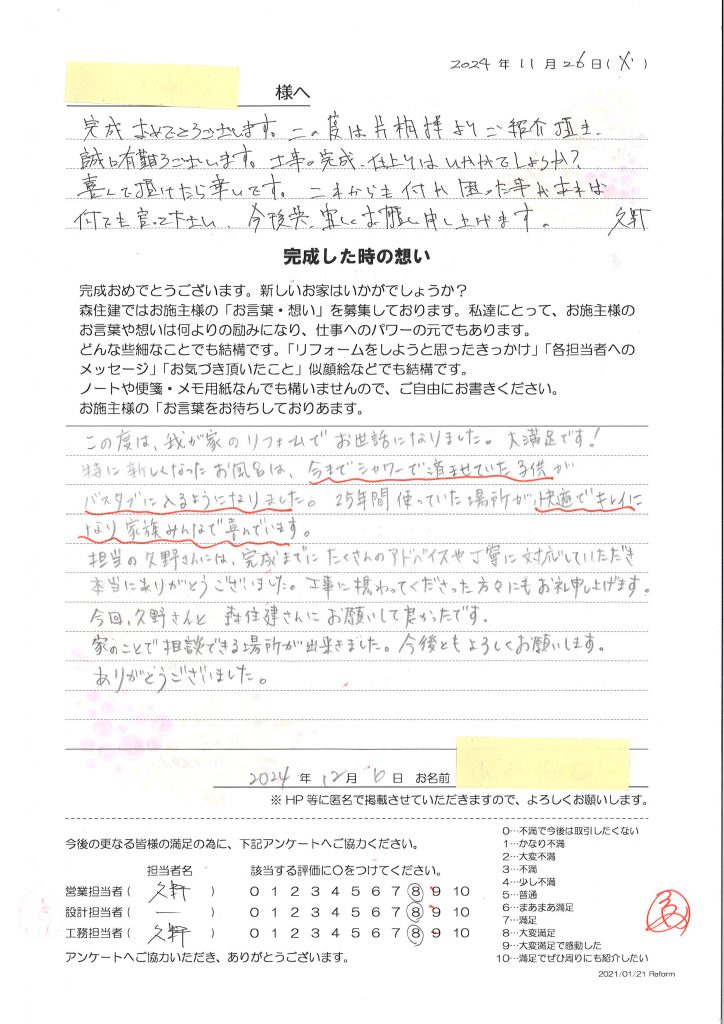 2024 年 11 月 26 日 (火)
様へ
完成おめでとうございます。この度は片桐様よりご紹介頂き、
誠に有難うございます。工事の完成、仕上りはいかがでしょうか?
喜んで頂けたら幸いです。これからも何か困った事があれば
何でも言って下さい。今後共、宜しくお願い申し上げます。 久野
完成した時の想い
完成おめでとうございます。新しいお家はいかがでしょうか?
森住建ではお施主様の「お言葉・想い」を募集しております。私達にとって、お施主様の
お言葉や想いは何よりの励みになり、仕事へのパワーの元でもあります。
どんな些細なことでも結構です。「リフォームをしようと思ったきっかけ」「各担当者への
メッセージ」「お気づき頂いたこと」似顔絵などでも結構です。
ノートや便箋・メモ用紙なんでも構いませんので、ご自由にお書きください。
お施主様の「お言葉をお待ちしておりあます。
この度は、我が家のリフォームでお世話になりました。大満足です!
特に新しくなったお風呂は、今までシャワーで済ませていた子供が
バスタブに入るようになりました。25年間使っていた場所が快適でキレイに
なり家族みんなで喜んでいます。
担当の久野さんには、完成までにたくさんのアドバイスや丁寧に対応していただき
本当にありがとうございました。工事に携わってくださった方々にもお礼申し上げます。
今回、久野さんと森住建さんにお願いして良かったです。
家のことで相談できる場所が出来きました。今後ともよろしくお願いします。
ありがとうございました。
2024 年 12 月 6 日 お名前
※HP等に匿名で掲載させていただきますので、よろしくお願いします。
今後の更なる皆様の満足の為に、下記アンケートへご協力ください。
担当者名 該当する評価に〇をつけてください。
営業担当者( 久野 ) 0 1 2 3 4 5 6 7 8 9 10
設計担当者( ― ) 0 1 2 3 4 5 6 7 8 9 10
工務担当者( 久野 ) 0 1 2 3 4 5 6 7 8 9 10
アンケートへご協力いただき、ありがとうございます。
0…不満で今後は取引したくない
1…かなり不満
2…大変不満
3…不満
4…少し不満
5…普通
6…まあまあ満足
7…満足
8…大変満足
9…大変満足で感動した
10…満足でぜひ周りにも紹介したい
2021/01/21 Reform